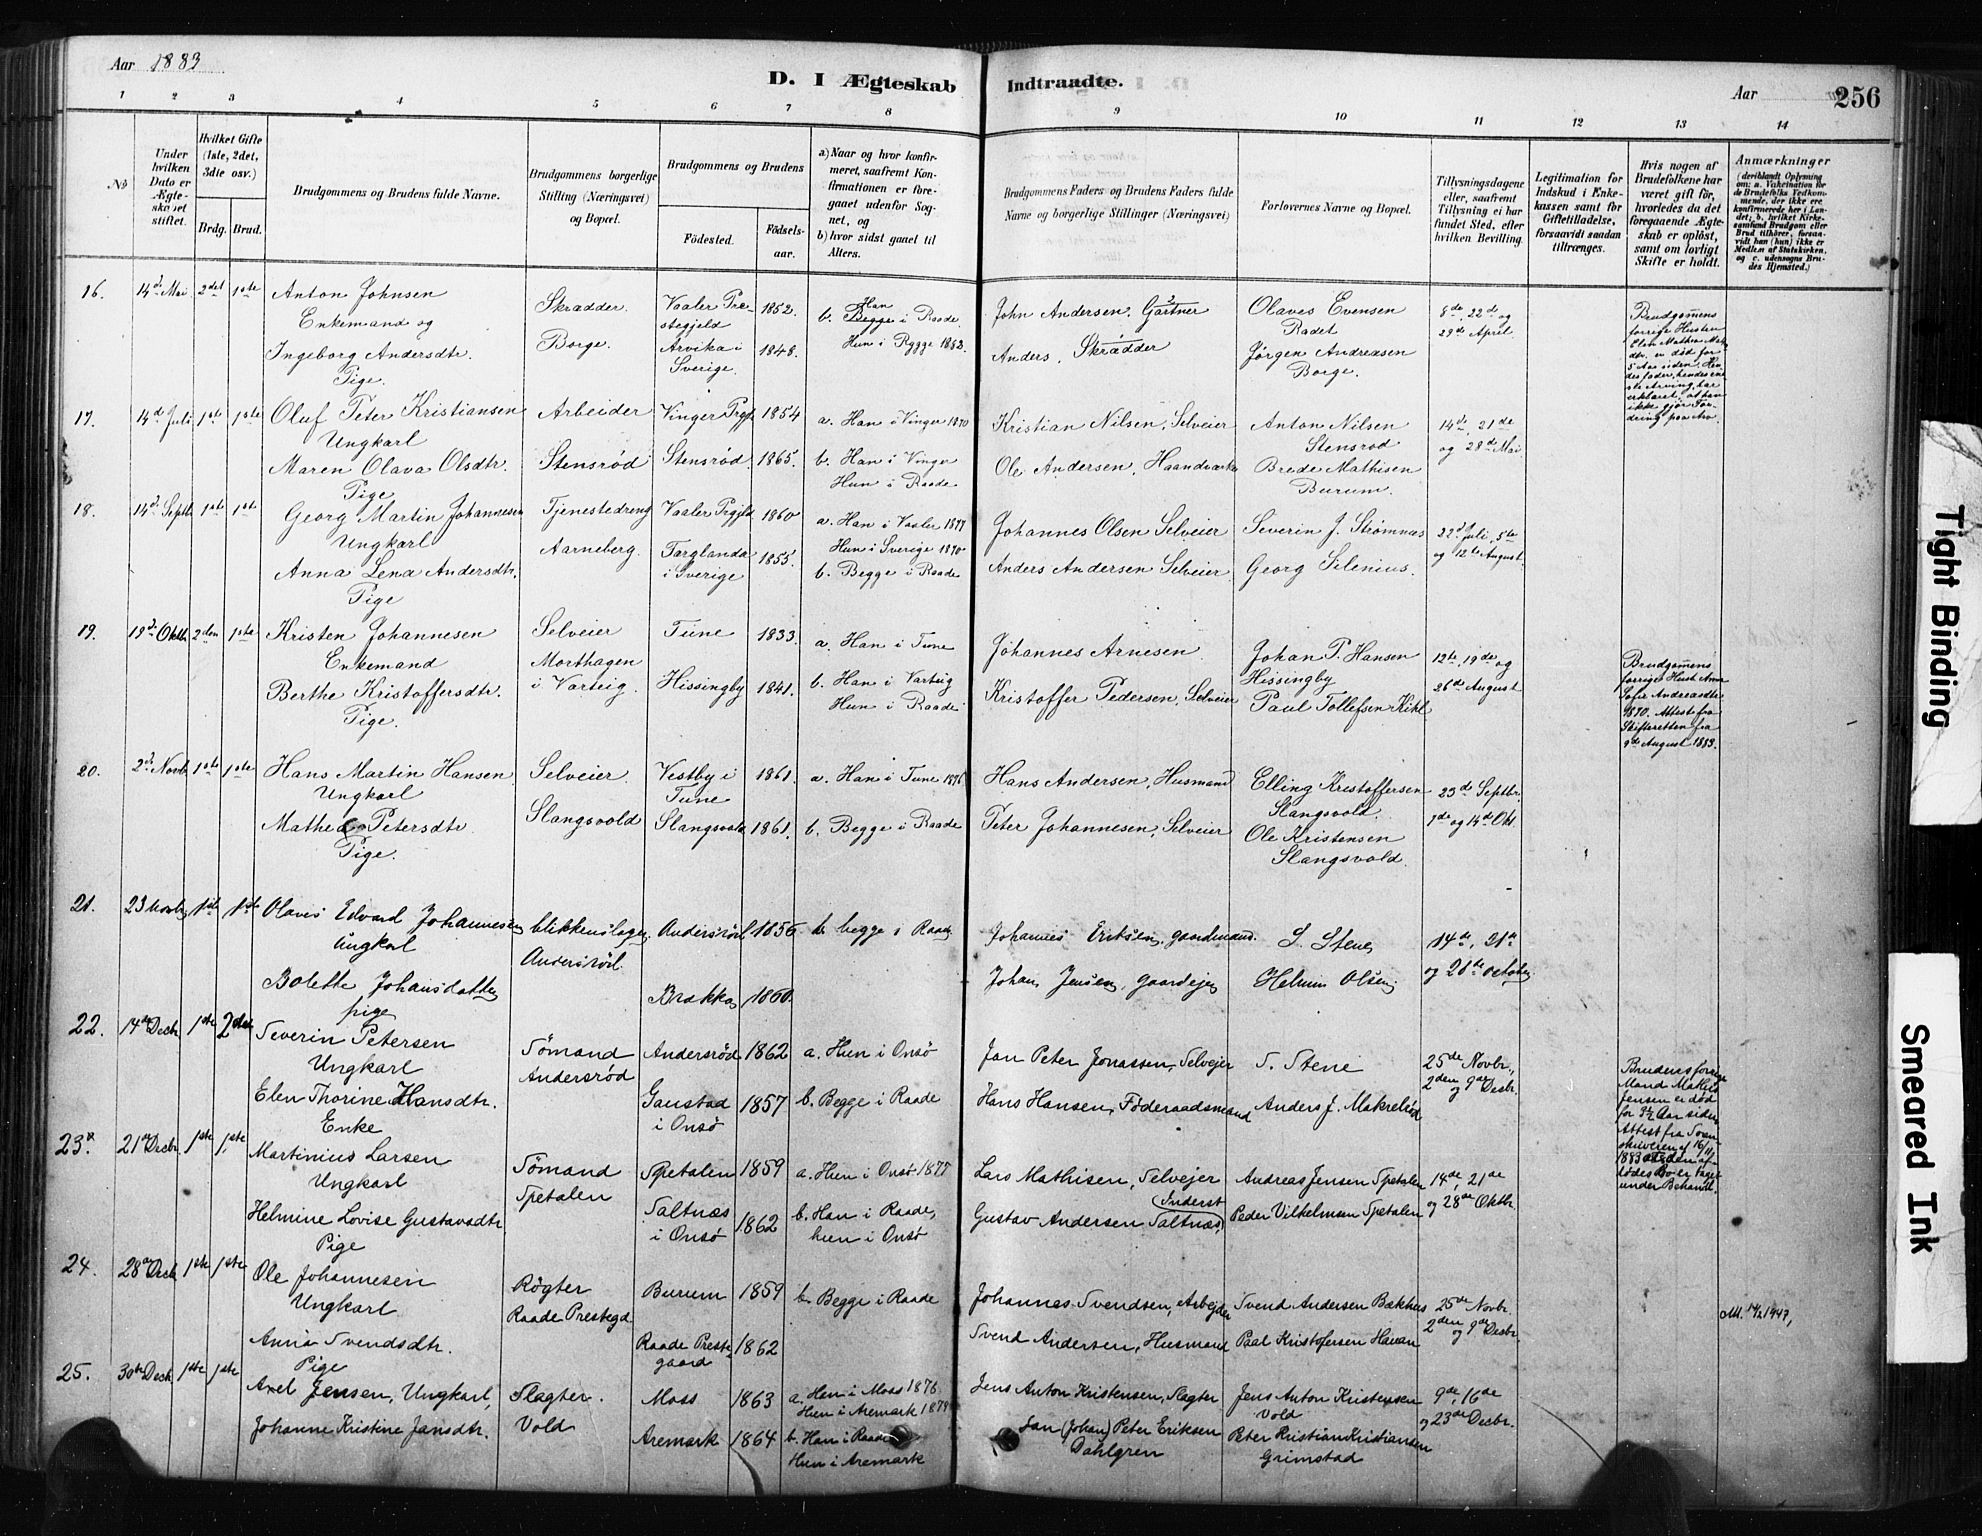 Aar 1883
D. I Ægteskab Indtraadte.
Aar
256
1 2 3 4 5 6 7 8 9 10 11 12 13 14
No
Under hvilken Dato er Ægteskabet stiftet.
Hvilket Gifte (1ste, 2det, 3die osv.)
Brdg. Brud.
Brudgommens og Brudens fulde Navne.
Brudgommens borgerlige Stilling (Næringsvei) og Bopæl.
Brudgommens og Brudens
Fødested.
Fødselsaar.
a) Naar og hvor konfirmeret, saafremt Konfirmationen er foregaaet udenfor Sognet, og
b) hvor sidst gaaet til Alters.
Brudgommens Faders og Brudens Faders fulde Navne og borgerlige Stillinger (Næringsvei)
Forlovernes Navne og Bopæl.
Tillysningsdagene eller, saafremt Tillysning ei har fundet Sted, efter hvilken Bevilling.
Legitimation for Indskud i Enkekassen samt for Giftetilladelse, forsaavidt saadan tiltrænges.
Hvis nogen af Brudefolkene har været gift før, hvorledes da det foregaaende Ægteskab er opløst, samt om lovligt Skifte er holdt.
Anmærkninger (deriblandt Oplysning om: a. Vakcination for de Brudefolks Vedkommende, der ikke ere konfirmerede her i Landet; b. hvilket Kirkesamfund Brudgom eller Brud tilhører, forsaavidt han (hun) ikke er Medlem af Statskirken, og c. udensogns Brudes Hjemsted.)
16. 14de Mai 2det 1ste Anton Johnsen Skrædder. Vaaler Præ- 1852. b. Han
Enkemand og stegjeld Begge i Raade.
Ingeborg Andersdtr. Borge. Arvika i 1848. Hun i Rygge 1883.
Pige. Sverige.
John Andersen, Gartner Olaves Evensen 8de 22de og
Radet 29de April.
Anders, Skrædder Jørgen Andreasen
Borge.
Brudgommens
forrige Hustru
Elen Mathea Mat
dtr. er død for
5 Aar siden. Hen
des fader, hendes ene
ste Arving, har
erklæret, at han
ikke gjør For-
dring paa Arv.
17. 14de Juli 1ste 1ste Oluf Peter Kristiansen Arbeider Vinger Prgj. 1854 a. Han i Vinger 1870
Ungkarl
Maren Olava Olsdtr. Stensrød Stensrød 1865. b. Han i Vinger
Pige Hun i Raade
Kristian Nilsen, Selveier Anton Nilsen 14de, 21de
Stensrød og 28de Mai
Ole Andersen, Haandværker Brede Mathisen
Burum.
18. 14de Septbr 1ste 1ste Georg Martin Johannesen Tjenestedreng Vaaler Prgjld 1860 a. Han i Vaaler 1877
Ungkarl Hun i Sverige 1870
Anna Lena Andersdtr. Aarneberg. Farglanda 1855. b. Begge i Raade
Pige i Sverige
Johannes Olsen Selveier Severin J. Strømnæs 22de Juli, 5te
Anders Andersen Selveier Georg Silenius. og 12te August
19. 19de Oktbr 2den 1ste Kristen Johannesen Selveier Tune 1833. a. Han i Tune
Enkemand Morthagen
Berthe Kristoffersdtr. i Varteig. Hissingby 1841. b. Han i Varteig
Pige. Hun i Raade
Johannes Arnesen Johan P. Hansen 12te, 19de og
Hissingby
Kristoffer Pedersen, Selveier Paul Tollefsen Kihl 26de August
Brudgommens
forrige Hust Anne
Sofie Andreasdtr
1870. Attest fra
Skifteretten fra
9de August 1883.
20. 2de Novb. 1ste 1ste Hans Martin Hansen Selveier Vestby i 1861. a. Han i Tune 1876
Ungkarl Tune
Mathea Petersdtr Slangsvold Slangsvold 1861. b. Begge i Raade
Pige.
Hans Andersen, Husmand Elling Kristoffersen 23de Septbr.
Slangsvold.
Peter Johannesen, Selveier Ole Kristensen 7de og 14de Okt.
Slangsvold.
21. 23 Novbr 1ste 1ste Olaves Edvard Johannesen blikkenslager Andersrød 1856 b. begge i Raade
Ungkarl Andersrød.
Bolette Johansdatter Brakka 1860.
pige
Johannes Eriksen, gaardmand. S. Stene, 14de, 21de
Johan Jensen, gaardejer Helmin Olsen og 28de October
22. 14de Decbr 1ste 2det Severin Petersen Sömand Andersröd 1862 a. Hun i Onsö
Ungkarl Andersröd
Elen Thorine Hansdtr. Gaustad 1857 b. Begge i Raade
Enke i Onsö
Jan Peter Jonassen, Selvejer S. Stene 25de Novbr.,
2den og 9de Decbr.
Hans Hansen, Föderaadsmand Anders J. Makrelröd
Brudens forrige
Mand Mathis
Jensen er död
for 3½ Aar siden
Attest fra Soren-
skriveren af 16/11
1883 at den af-
dödes Bo er taget
under Behandl.
23. 21de Decbr. 1ste 1ste Martinius Larsen Sömand Spetalen 1859 a. Hun i Onsö 1877
Ungkarl Spetalen
Helmine Lovise Gustavsdtr Saltnæs 1862 b. Han i Raade,
Pige i Onsö hun i Onsö
Lars Mathisen, Selvejer Andreas Jensen Spetalen 14de, 21de
Inderst
Gustav Andersen Saltnæs, Peder Vilhelmsen Spetalen og 28de Oktbr.
24. 28de Decb 1ste 1ste Ole Johannesen Rögter Burum 1859 b. Begge i Raade
Ungkarl Raade Prestegd
Anna Svendsdtr. Raade Preste- 1862
Pige gaard
Johannes Svendsen, Arbejder Svend Andersen Bækhus 25de Novbr.
2den og 9de Decbr.
Svend Andersen, Husmand Paal Kristofersen Haran
Att. 14/2 1947,
25. 30te Decb 1ste 1ste Axel Jensen, Ungkarl, Slagter. Moss 1863 a. Han i Moss 1876
Hun i Aremark 1879
Johanne Kristine Jansdtr. Vold Aremark 1864 b. Han i Raade
Hun i Aremark
Jens Anton Kristensen, Slagter Jens Anton Kristensen 9de, 16de
Vold og 23de Decbr.
Jan (Johan) Peter Eriksen Peter Kristian Kristiansen
Dahlgren Grimstad
Tight Binding
Smeared Ink